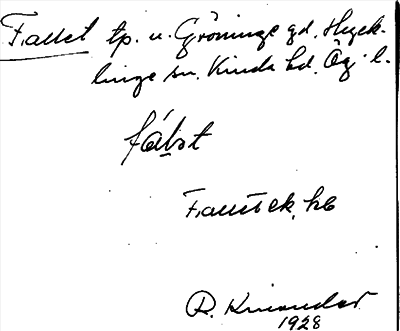 Fallet tp. u. Gröninge gd. Hyck-
linge sn. Kinda hd. Ög. l.
fálət
Fallet ek, hc
R. Kinander
1928